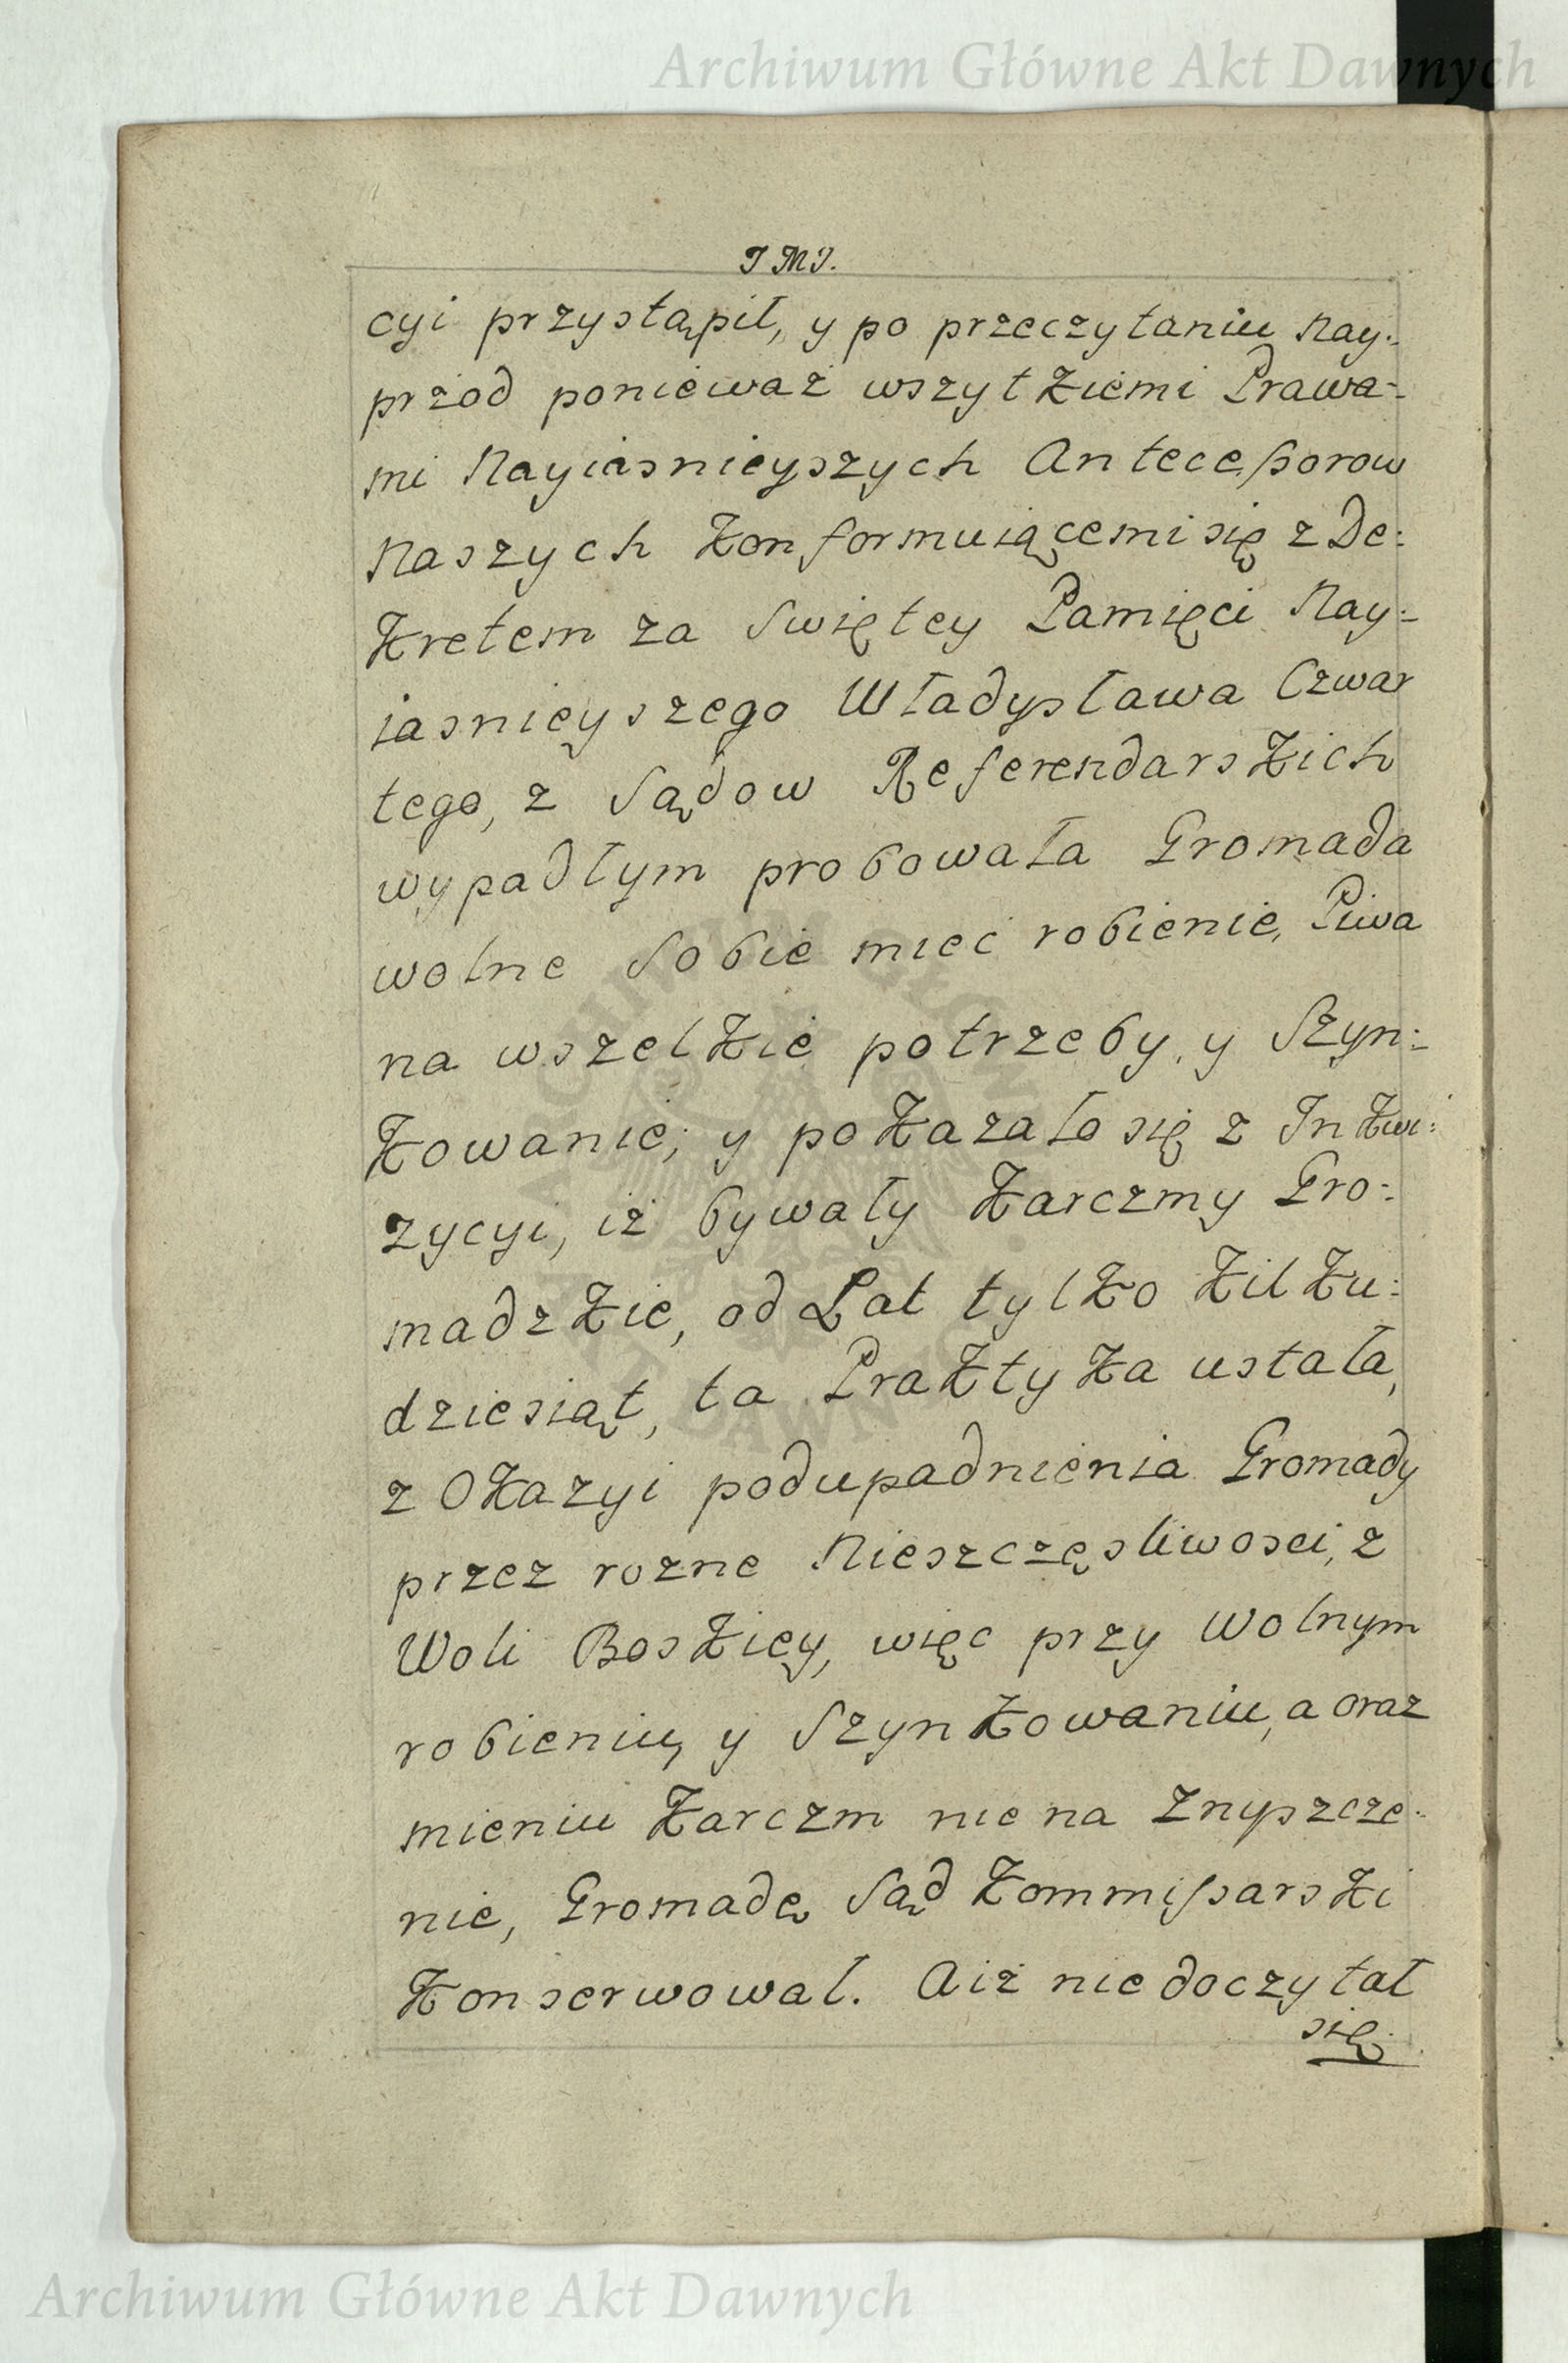 Archiwum Główne Akt Dawnych
J M J.
cyi przystąpił, y po przeczytaniu Nay:
przod ponieważ wszytkiemi Prawa-
mi Nayiasnieyszych Antecessorow
Naszych Konformuiącemi się z De:
Kretem za Swiętey Pamięci Nay:
iasnieyszego Władysława Czwar
tego, z Sądow Referendarskich
wypadłym probowała Gromada
wolne Sobie mieć robienie, Piwa
na wszelkie potrzeby, y Szyn:
Kowanie; y pokazało się z Inkwi:
zycyi, iż bywały Karczmy Gro:
madzkie, od Lat tylko kilku:
dziesiąt, ta Praktyka ustała,
z Okazyi podupadnienia Gromady
przez rozne Nieszczęsliwosci, z
Woli Boskiey, więc przy Wolnym
robieniu, y Szynkowaniu, a oraz
mieniu Karczm nie na Znyszcze:
nie, Gromadę Sąd Kommissarski
Konserwował. A iż nie doczytał
się
Archiwum Główne Akt Dawnych